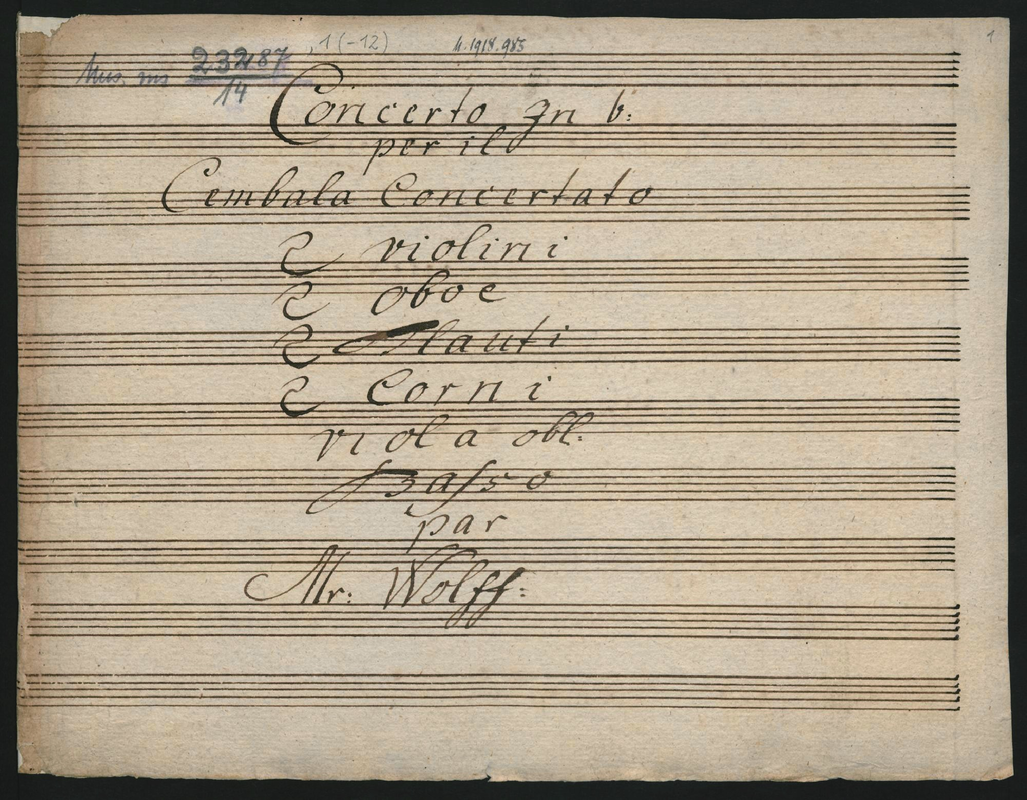 Mus. ms 23287 , 1 (-12) M. 1918.983 1
14
Concerto In b:
per il
Cembala Concertato
2 violini
2 oboe
2 Flauti
2 Corni
viola obl:
Basso
par
Mr: Wolff: